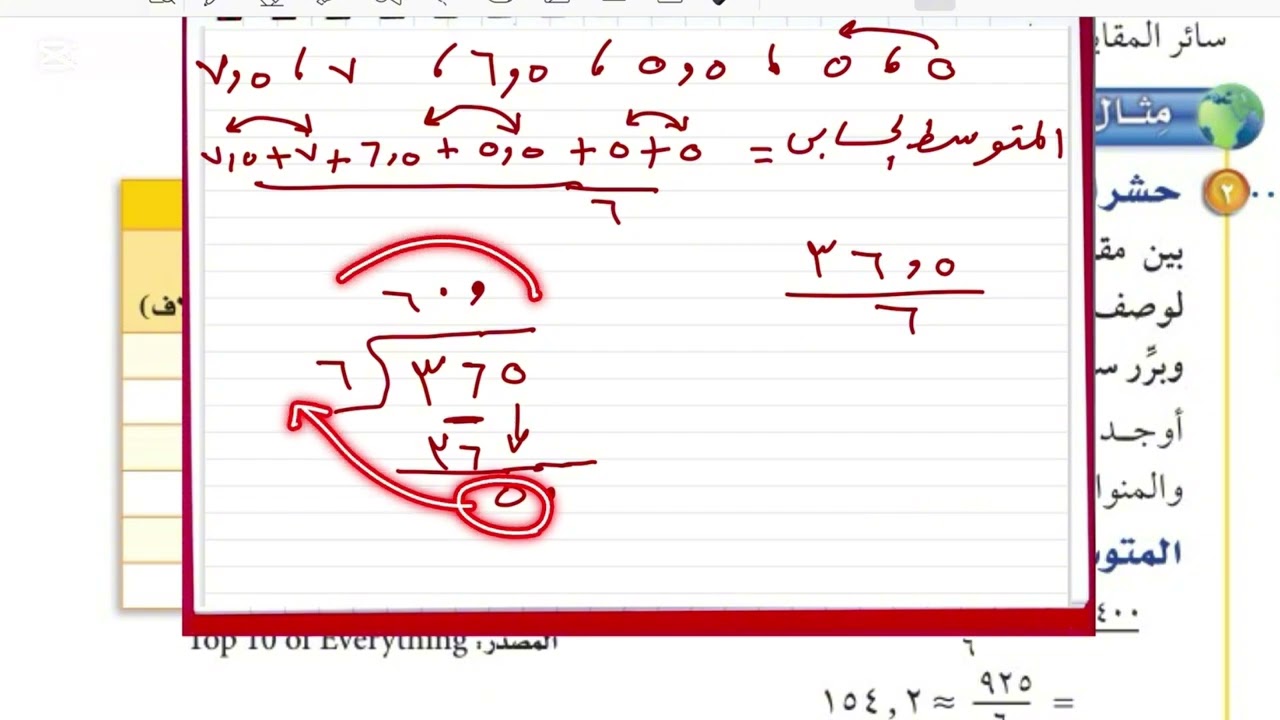 سائر المقاب
٥ ، ٥ ، ٥,٥ ، ٦,٥ ، ٧ ، ٧,٥
مثال
المتوسط الحسابي = ٥+٥+٥,٥+٦,٥+٧+٧,٥
٦
٢ حشر
بين مق
٣٦,٥
٦
لوصف
لاف)
وبرِّر س
٦٠,
٦ ٣٦٥
٣٦
٥٠
أوجد
والمنوا
المتو
٤٠٠
٦
المصدر: Top 10 of Everything
= ٩٢٥/٦ ≈ ١٥٤,٢